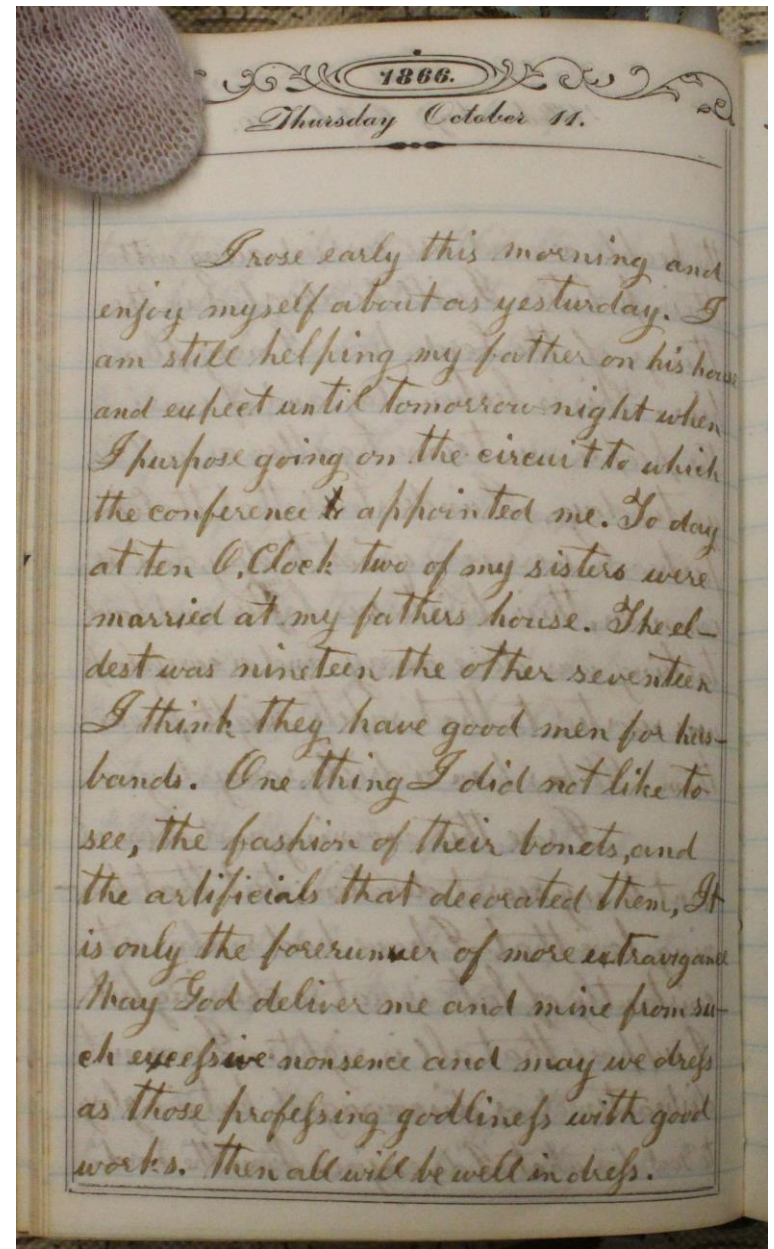 1866.
Thursday October 11.
I rose early this morning and
enjoy myself about as yesturday. I
am still helping my father on his house
and expect until tomorrow night when
I purpose going on the circuit to which
the conference appointed me. To day
at ten O,Clock two of my sisters were
married at my fathers house. The el-
dest was nineteen the other seventeen
I think they have good men for hus-
bands. One thing I did not like to
see, the fashion of their bonets, and
the artificials that decorated them, It
is only the forerunner of more extravigance
May God deliver me and mine from su-
ch excessive nonsence and may we dress
as those professing godliness with good
works. then all will be well in dress.